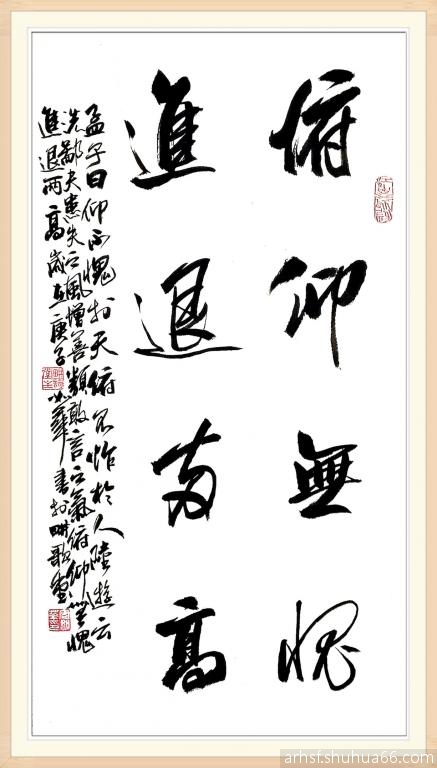 俯仰無愧
進退兩高
孟子曰仰不愧於天俯不怍於人陸遊云
洗鄙夫患失之風增善類敢言之氣俯仰無愧
進退兩高歲在庚子
書於畊歌堂
arhsf.shuhua66.com